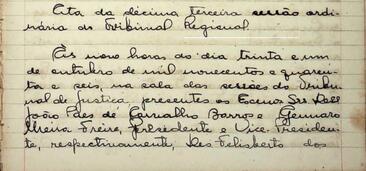 Ata da décima terceira sessão ordi-
nária do Tribunal Regional.
Ás nove horas do dia trinta e um
de outubro de mil novecentos e quaren-
ta e seis, na sala das sessões do Tribu-
nal de Justiça, presentes os Exmos Srs
João Pães de Carvalho Barros e Gennaro
Meira Freire, Presidente e Vice-Presiden-
te, respectivamente, Des Felisberto dos